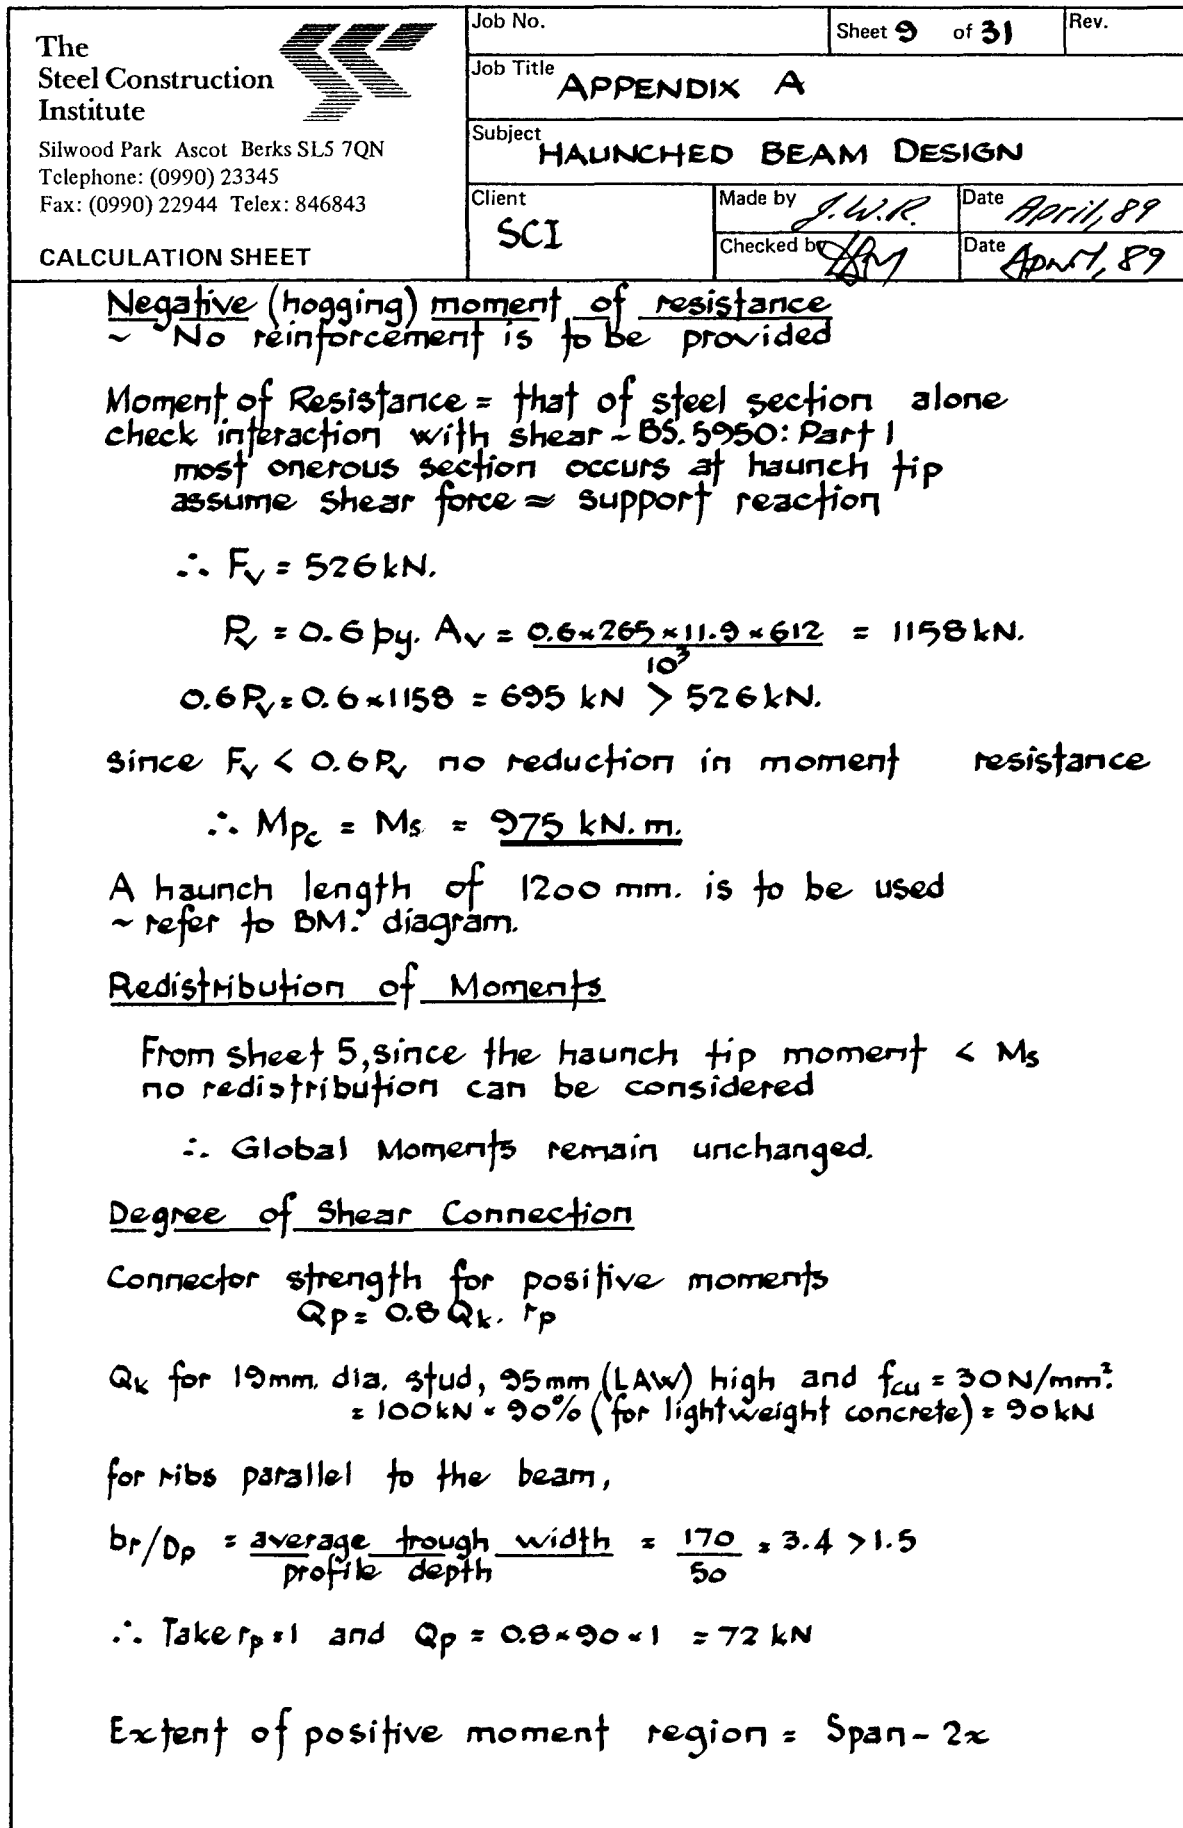 The
Steel Construction
Institute
Silwood Park Ascot Berks SL5 7QN
Telephone: (0990) 23345
Fax: (0990) 22944 Telex: 846843
CALCULATION SHEET
Job No.
Sheet 9 of 31
Rev.
Job Title APPENDIX A
Subject HAUNCHED BEAM DESIGN
Client SCI
Made by J.W.R.
Date April, 89
Checked by
Date April, 89
Negative (hogging) moment of resistance
~ No reinforcement is to be provided
Moment of Resistance = that of steel section alone
check interaction with shear - BS. 5950: Part 1
most onerous section occurs at haunch tip
assume shear force ≈ support reaction
∴ Fv = 526 kN.
Pv = 0.6 py. Av = 0.6×265×11.9×612 / 10³ = 1158 kN.
0.6Pv = 0.6×1158 = 695 kN > 526 kN.
since Fv < 0.6Pv no reduction in moment resistance
∴ Mpc = Ms = 975 kN.m.
A haunch length of 1200 mm. is to be used
~ refer to BM. diagram.
Redistribution of Moments
From sheet 5, since the haunch tip moment < Ms
no redistribution can be considered
∴ Global Moments remain unchanged.
Degree of Shear Connection
Connector strength for positive moments
Qp = 0.8 Qk. rp
Qk for 19mm. dia. stud, 95mm (LAW) high and fcu = 30N/mm².
= 100kN × 90% (for lightweight concrete) = 90kN
for ribs parallel to the beam,
br/Dp = average trough width / profile depth = 170 / 50 = 3.4 > 1.5
∴ Take rp = 1 and Qp = 0.8×90×1 = 72 kN
Extent of positive moment region = Span - 2x